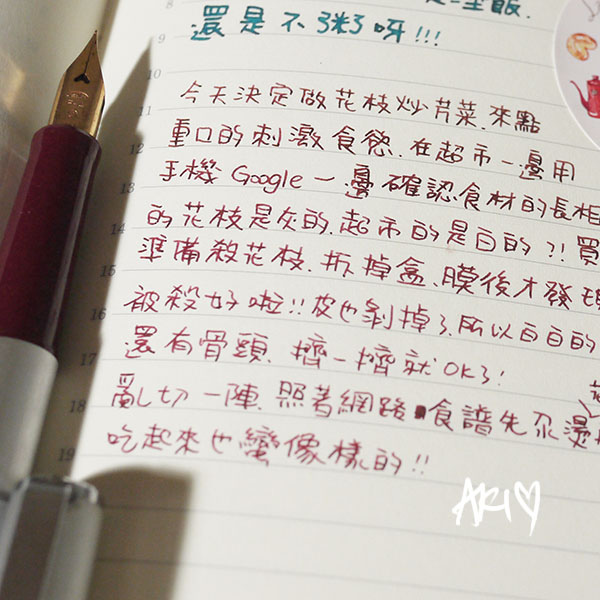 是一坐飯.
9 還是不粥呀!!!
10
11 今天決定做花枝炒芹菜.來點
12 重口的刺激食慾.在超市一邊用
13 手機Google一邊確認食材的長相
14 的花枝是灰的.超市的是白的?!買
15 準備殺花枝.拆掉盒、膜後才發現
16 被殺好啦!!皮也剝掉了.所以白白的
17 還有骨頭.擠一擠就OK了!
18 亂切一陣.照著網路食譜先汆燙
19 吃起來也蠻像樣的!!
AKI♡